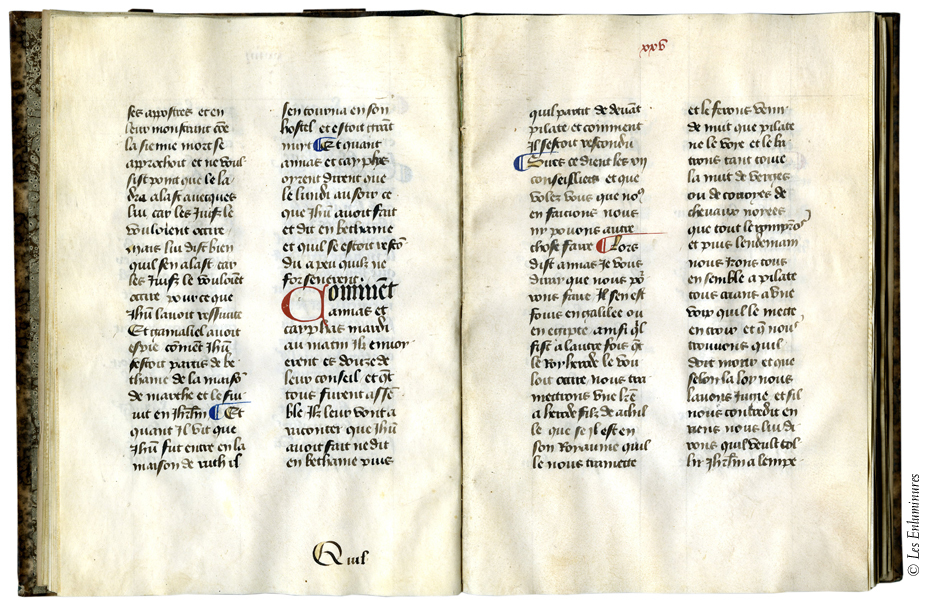 ses appostres et en
leur monstrant cõe
la sienne mort se
approchoit et ne voul
sist point que le la
dra alast avecques
lui car les Juifz le
vouloient occire
mais lui dist bien
quil sen alast car
les Juifz le vouloiẽt
occire pour ce que
Jhũ lavoit ressuite
Et gamaliel avoit
espie cõmẽt Jhũ
sestoit partis de be
thanie de la maisõ
de marthe et le sui
vit en Jhrlm Et
quant il vit que
Jhũ fut entre en la
maison de ruth il
sen tourna en son
hostel et estoit tãtãt
nuyt Et quant
annas et cayphas
oyrent dirent que
le lundi au soir ce
que Jhũ avoit fait
et dit en bethanie
et quil se estoit resco
du a peu quilz ne
forsenerent
Commẽt
annas et
cayphas mardi
au matin Ilz envoi
erent es douze de
leur conseil et qãt
tous furent assẽ
ble Ilz leur vont a
raconter que Jhũ
avoit fait ne dit
en bethanie puis
Quil
xxv
quil partit de devãt
pilate et comment
Il sestoit rescondu
Sires ce dient les vii
conseilliers et que
volez vous que noꝰ
en facions nous
ny povons autre
chose faire Lors
dist annas Je vous
diray que nous po
rons faire Il sen est
fouis en galilee ou
en egipte ainsi ql
fist a lautre fois qãt
le Roy herode le vou
loit occire nous tra
mettrons une lrẽ
a herode filz de achil
le que se il est en
son Royaume quil
le nous tramette
et le ferons venir
de nuit que pilate
ne le voie et le ba
trons tant toute
la nuit de verges
ou de couroyes de
chevaux noyees
que tout le romprõs
et puis lendemain
nous Irons tous
ensemble a pilate
tous avant avne
voix quil le mette
en croix et q̃ nous
trouvons quil
doit morir et que
selon la loy nous
lavons Jugie et sil
nous contredit en
riens nous lui di
rons quil veult tol
lir Jhrlm a lempe
© Les Enluminures